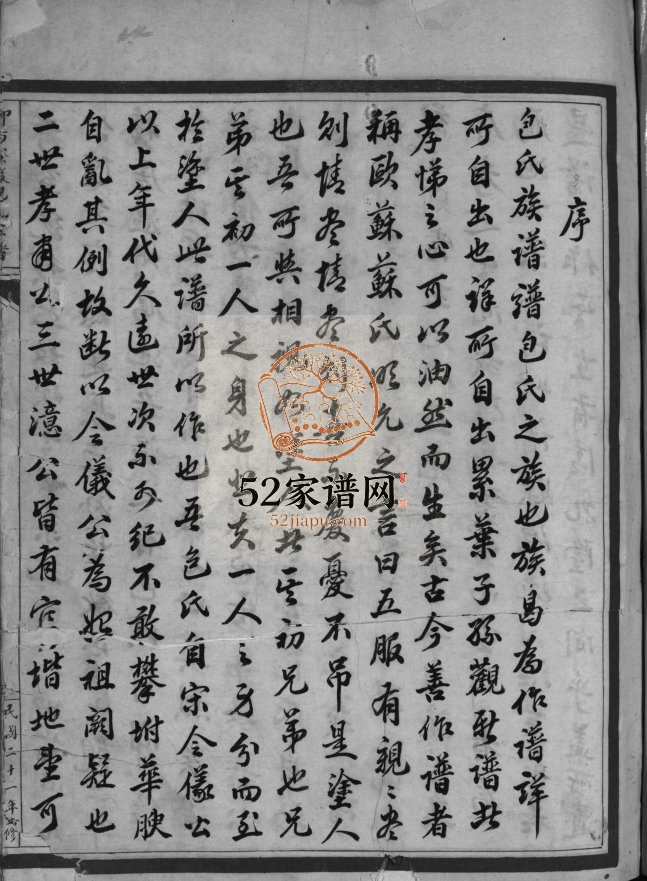 序
包氏族譜譜包氏之族也族曷為作譜詳
所自出也詳所自出累葉子孫觀斯譜者
孝悌之心可以油然而生矣古今善作譜者
稱歐蘇蘇氏明允之言曰五服有親〻盡
則情盡情盡則喜不慶憂不弔是塗人
也吾所與相視如塗人者其初兄弟也兄
弟其初一人之身也悲夫一人之身分而至
於塗人此譜所以作也吾包氏自宋令儀公
以上年代久遠世次不紀不敢攀坿華腴
自亂其例故斷以令儀公為始祖闕疑也
二世孝肅公三世澺公皆有官階地望可
民國二十一年重修
52家谱网
52jiapu.com